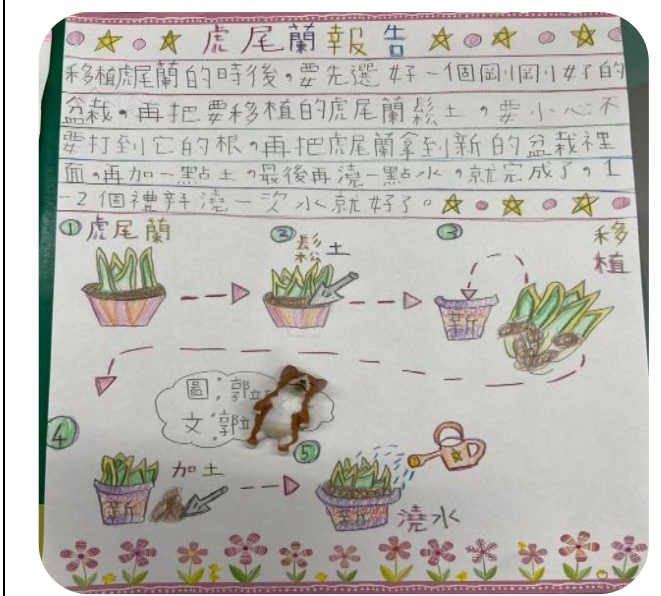 虎尾蘭報告
移植虎尾蘭的時後，要先選好一個剛剛好的
盆栽，再把要移植的虎尾蘭鬆土，要小心不
要打到它的根，再把虎尾蘭拿到新的盆栽裡
面，再加一點土，最後再澆一點水，就完成了，1
-2個禮拜澆一次水就好了。
①虎尾蘭
②鬆土
③移植
新
圖：郭立
文：郭立
④加土
新
⑤澆水
新